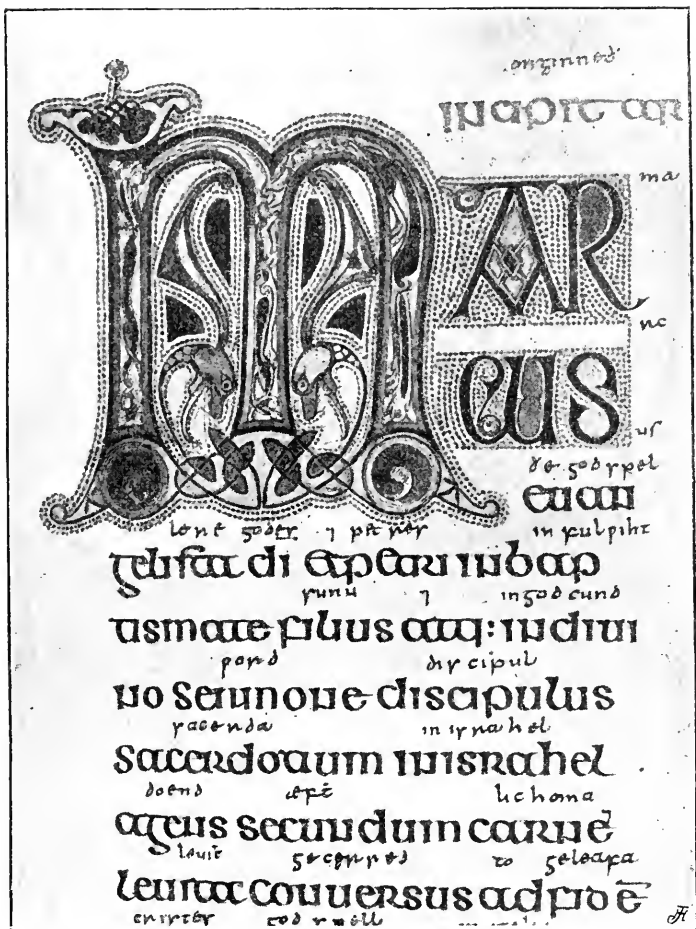 onginneð
incipit ar
ma
MAR
rc
CUS
us
ðe godspel
euan
godes ⁊ petres in fulpiht
gelista di et petri in bap
sunu ⁊ in godcund
tismate filius atq: in diui
word discipul
no sermone discipulus
sacerda in israhel
sacerdotium in israhel
doend æft̄ lichoma
agens secundum carnē
leuit̄ gecerred to geleafa
leuita conuersus ad fidē
cristes godspell